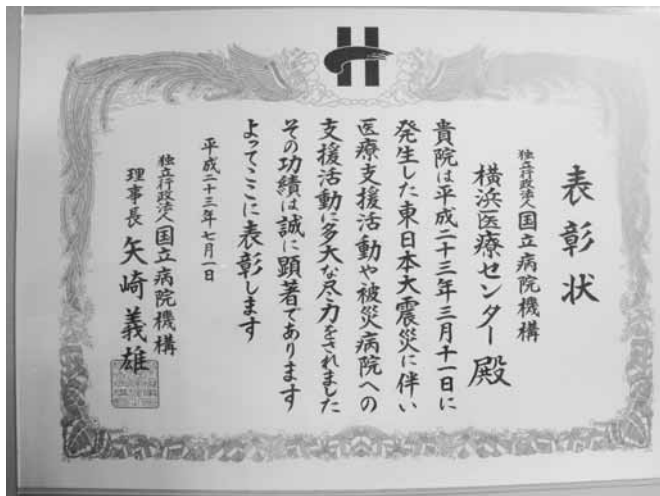 表彰状
独立行政法人国立病院機構
横浜医療センター殿
貴院は平成二十三年三月十一日に
発生した東日本大震災に伴い
医療支援活動や被災病院への
支援活動に多大な尽力をされました
その功績は誠に顕著であります
よってここに表彰します
平成二十三年七月一日
独立行政法人国立病院機構
理事長 矢崎義雄